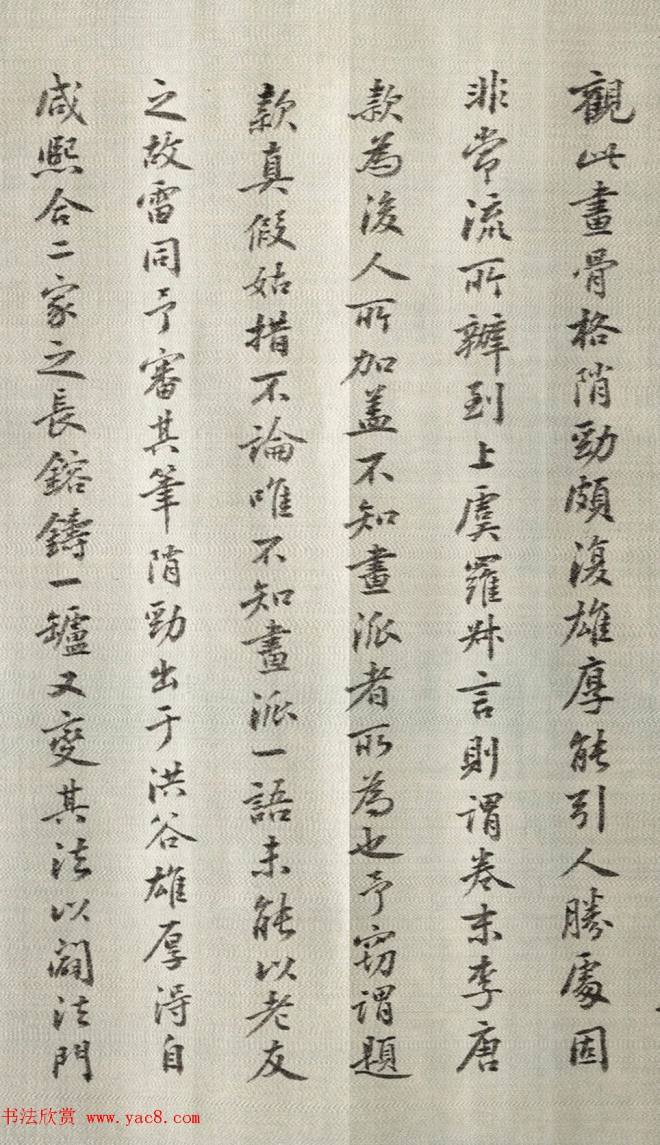 觀此畫骨格陗勁頗復雄厚能引人勝處固
非常流所辦到上虞羅叔言則謂卷末李唐
款為後人所加蓋不知畫派者所為也予竊謂題
款真假姑措不論唯不知畫派一語未能以老友
之故雷同予審其筆陗勁出于洪谷雄厚得自
咸熙合二家之長鎔鑄一罏又變其法以闢法門
书法欣赏 www.yac8.com